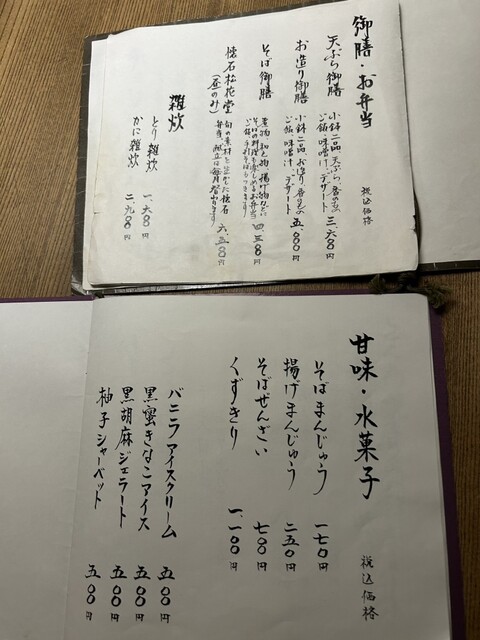 御膳・お弁当
税込価格
天ぷら御膳
小鉢二品、天ぷら、香のもの
ご飯、味噌汁、デザート
三、六〇〇円
お造り御膳
小鉢二品、お造り、香のもの
ご飯、味噌汁、デザート
五、〇〇〇円
そば御膳
四、三〇〇円
懐石松花堂
(昼のみ)
旬の素材を生かした懐石
弁当、献立は毎月替わります
六、五〇〇円
雑炊
とり雑炊
一、六〇〇円
かに雑炊
二、九〇〇円
甘味・水菓子
税込価格
そばまんじゅう 一七〇円
揚げまんじゅう 二五〇円
そばぜんざい 七〇〇円
くずきり 一、一〇〇円
バニラアイスクリーム 五〇〇円
黒蜜きなこアイス 五〇〇円
黒胡麻ジェラート 五〇〇円
柚子シャーベット 五〇〇円